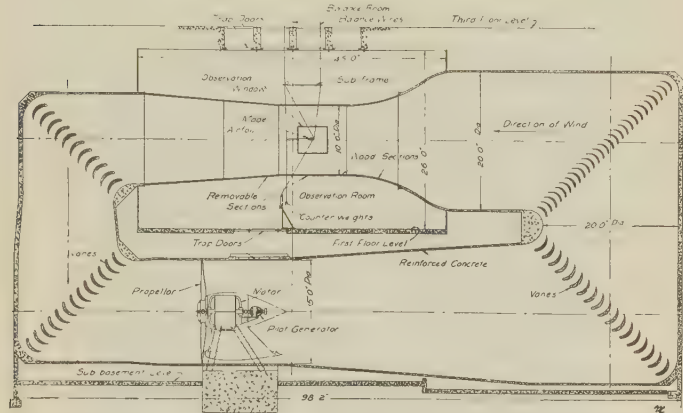 Trap Doors
Balance Room
Balance Wires
Third Floor Level
45.0'
Observation
Window
Sub frame
Model
Airfoil
10.0' Dia.
Direction of Wind
Wood Sections
26.0'
20.0' Dia.
Removable
Sections
Observation Room
Counter Weights
Trap Doors
First Floor Level
20.0' Dia
Vanes
Reinforced Concrete
Propellor
Motor
15.0' Dia.
Pilot Generator
Vanes
Sub basement Level
98' 2"